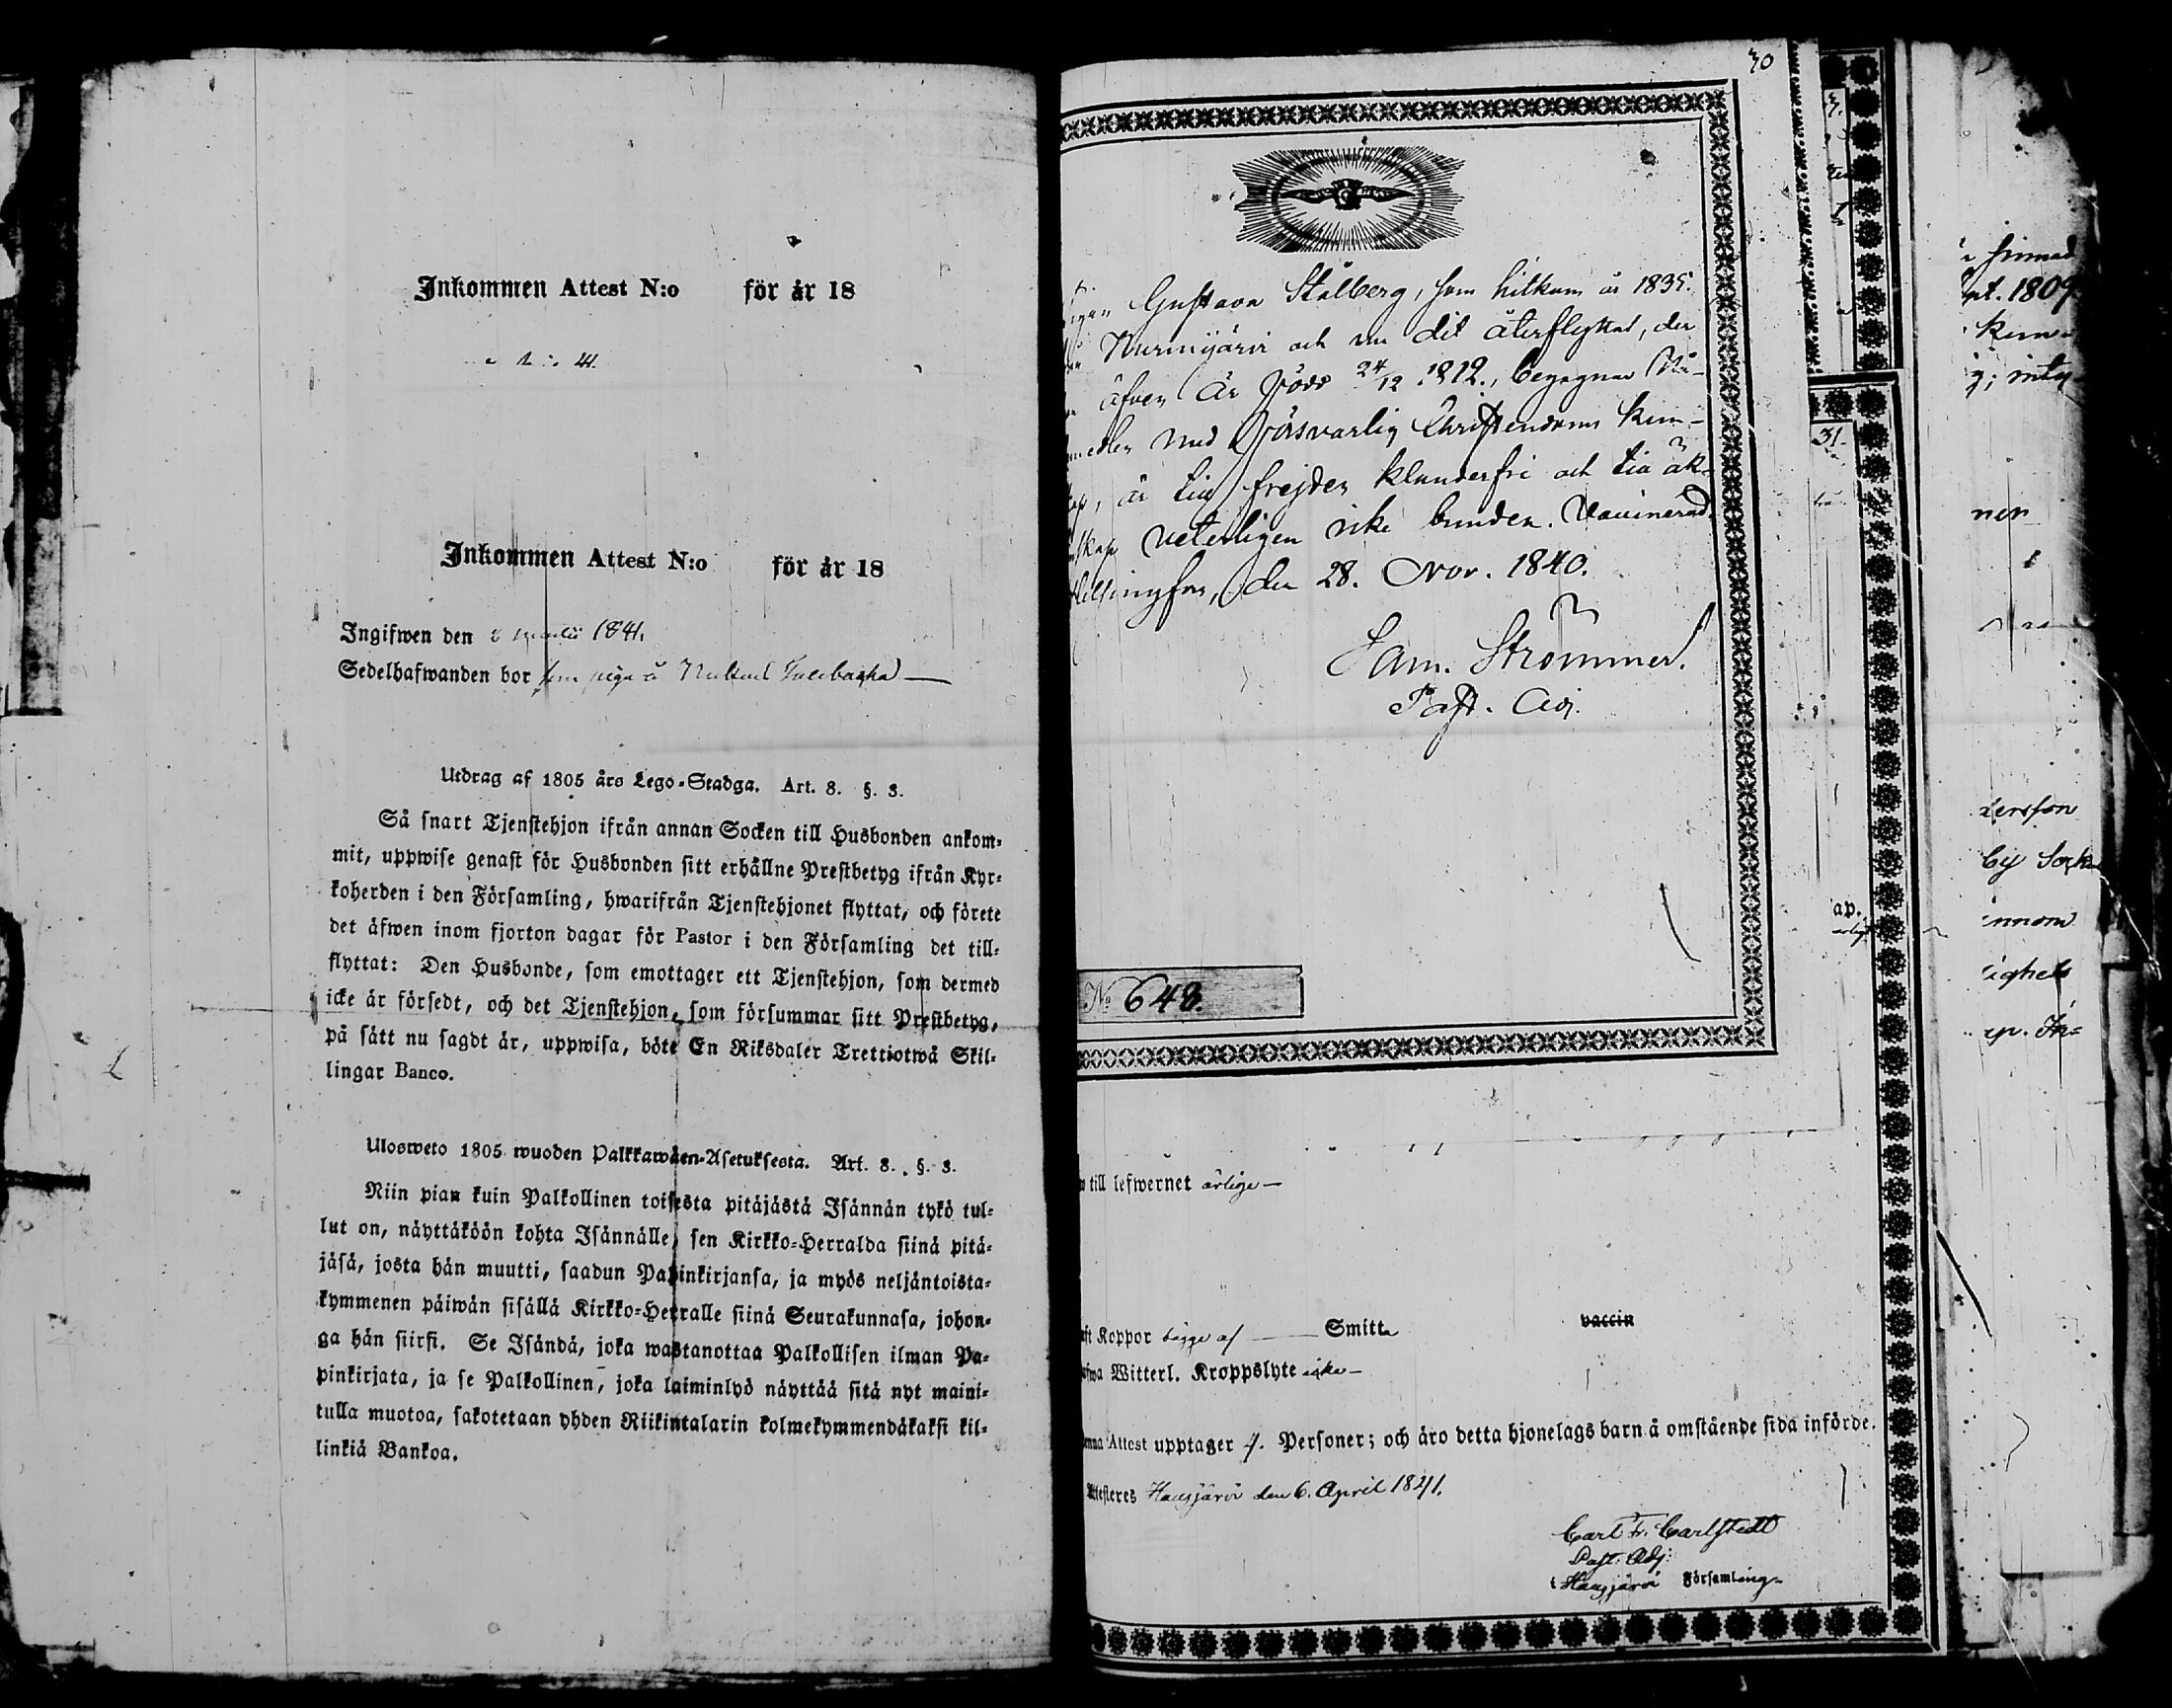 Inkommen Attest N:o för år 18
Inkommen Attest N:o för år 18
Ingifwen den 1841.
Sedelhafwanden bor som piga å
Utdrag af 1805 års Lego-Stadga. Art. 8. §. 3.
Så snart Tjenstehjon ifrån annan Socken till Husbonden ankom-
mit, uppwise genast för Husbonden sitt erhållne Prestbetyg ifrån Kyr-
koherden i den Församling, hwarifrån Tjenstehjonet flyttat, och förete
det äfwen inom fjorton dagar för Pastor i den Församling det till-
flyttat: Den Husbonde, som emottager ett Tjenstehjon, som dermed
icke är försedt, och det Tjenstehjon, som försummar sitt Prestbetyg,
på sätt nu sagdt är, uppwisa, böte En Riksdaler Trettiotwå Skil-
lingar Banco.
Ulosweto 1805 wuoden Palkkawäen-Asetuksesta. Art. 8. §. 3.
Niin pian kuin Palkollinen toisesta pitäjästä Isännän tykö tul-
lut on, näyttäköön kohta Isännälle, sen Kirkko-Herralda siinä pitä-
jäsä, josta hän muutti, saadun Papinkirjansa, ja myös neljäntoista-
kymmenen päiwän sisällä Kirkko-Herralle siinä Seurakunnasa, johon-
ga hän siirsi. Se Isändä, joka wastanottaa Palkollisen ilman Pa-
pinkirjata, ja se Palkollinen, joka laiminlyö näyttää sitä nyt maini-
tulla muotoa, sakotetaan yhden Riikintalarin kolmekymmendäkaksi kil-
linkiä Bankoa.
30
Gustava Stålberg, som hitkom år 1835.
Nurmijärvi och nu dit återflyttat, der
äfven är född 24/12 1812., begagnar Nå-
medlen med försvarlig Christendoms kun-
, är till frejden klanderfri och till äk-
skap veterligen icke bunden. Vaccinerad.
Helsingfors, den 28. Nov. 1840.
Sam. Strömmer.
Past. Adj.
No 648.
till lefwernet ärlige
Koppor Smitta vaccin
Witterl. Kroppslyte icke
Attest upptager 4. Personer; och äro detta hjonelags barn å omstående sida införde.
Attesteres Hausjärvi den 6. April 1841.
Carl Fr. Carlstedt
Past. Adj.
i Hausjärvi Församling
31.
ap.
1809